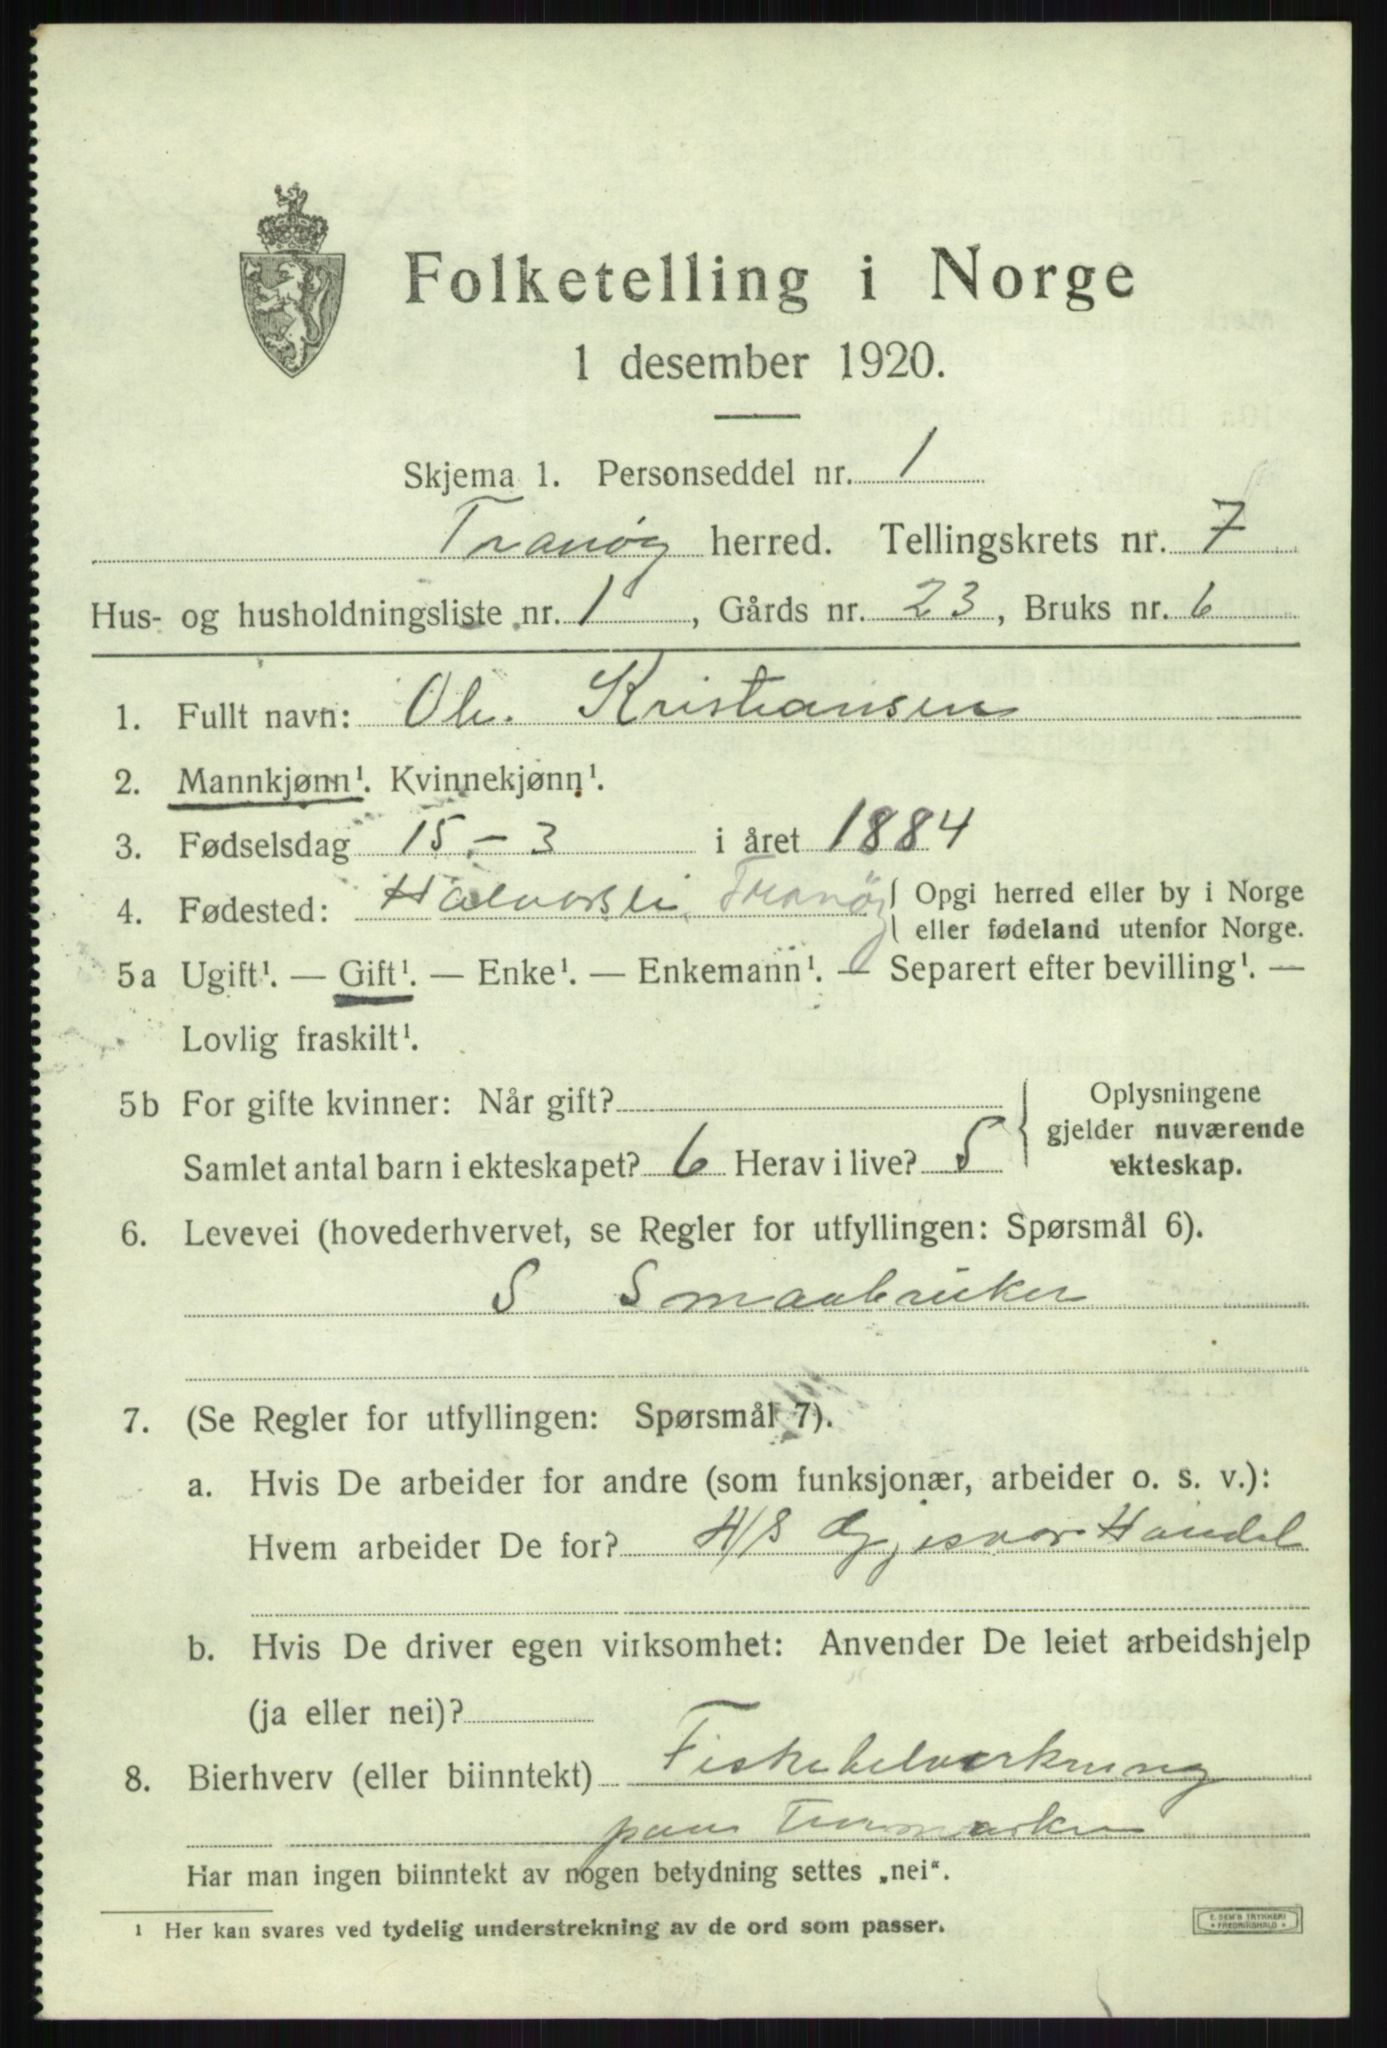 Folketelling i Norge
1 desember 1920.
Skjema 1. Personseddel nr. 1
Tranøy herred. Tellingskrets nr. 7
Hus- og husholdningsliste nr. 1, Gårds nr. 23, Bruks nr. 6
1. Fullt navn: Ole Kristiansen
2. Mannkjønn¹. Kvinnekjønn¹.
3. Fødselsdag 15 - 3 i året 1884
4. Fødested: Tranøy { Opgi herred eller by i Norge
eller fødeland utenfor Norge.
5a Ugift¹. — Gift¹. — Enke¹. — Enkemann¹. — Separert efter bevilling¹. —
Lovlig fraskilt¹.
5b For gifte kvinner: Når gift?
Samlet antal barn i ekteskapet? 6 Herav i live? 5
{ Oplysningene
gjelder nuværende
ekteskap.
6. Levevei (hovederhvervet, se Regler for utfyllingen: Spørsmål 6).
S Smaabruker
7. (Se Regler for utfyllingen: Spørsmål 7).
a. Hvis De arbeider for andre (som funksjonær, arbeider o. s. v.):
Hvem arbeider De for? A/S Gjesvær Handel
b. Hvis De driver egen virksomhet: Anvender De leiet arbeidshjelp
(ja eller nei)?
8. Bierhverv (eller biinntekt) Fisketilvirkning
paa Finnmarken
Har man ingen biinntekt av nogen betydning settes „nei“.
¹ Her kan svares ved tydelig understrekning av de ord som passer.
E. SEM'S TRYKKERI
FREDRIKSHALD